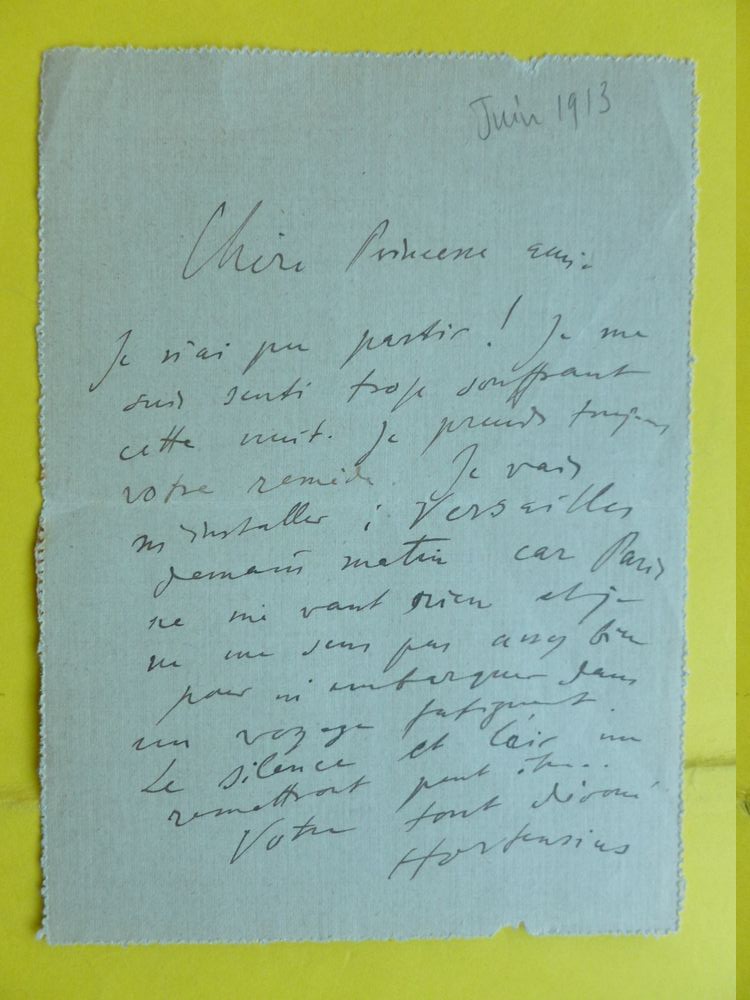 Juin 1913
Chère Princesse amie
Je n'ai pu partir ! Je me
suis senti trop souffrant
cette nuit. Je prends toujours
votre remède. Je vais
m'installer à Versailles
demain matin car Paris
ne me vaut rien et je
ne me sens pas assez bien
pour m'embarquer dans
un voyage fatigant.
Le silence et l'air me
remettront peut être..
Votre tout dévoué
Hortensius